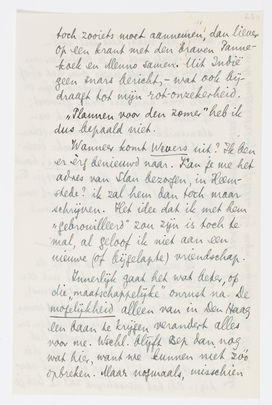 toch zooiets moet aannemen, dan liever
op een krant met den braven Panne-
koek en Menno samen. Uit Indië
geen snars bericht, – wat ook bij-
draagt tot mijn rot-onzekerheid.
„Plannen voor den zomer" heb ik
dus bepaald niet.
Wanneer komt Wevers uit? Ik ben
er erg benieuwd naar. Kan je me het
adres van Slau bezorgen, in Heem-
stede? ik zal hem dan toch maar
schrijven. Het idee dat ik met hem
„gebrouilleerd" zou zijn is toch te
mal, al geloof ik niet aan een
nieuwe (of bijgelapte) vriendschap.
Innerlijk gaat het wat beter, op
die „maatschappelijke" onrust na. De
mogelijkheid alleen van in Den Haag
een baan te krijgen verandert alles
voor me. Wschl. blijft Bep dan nog
wat hier, want we kunnen niet zóó
opbreken. Maar nogmaals, misschien